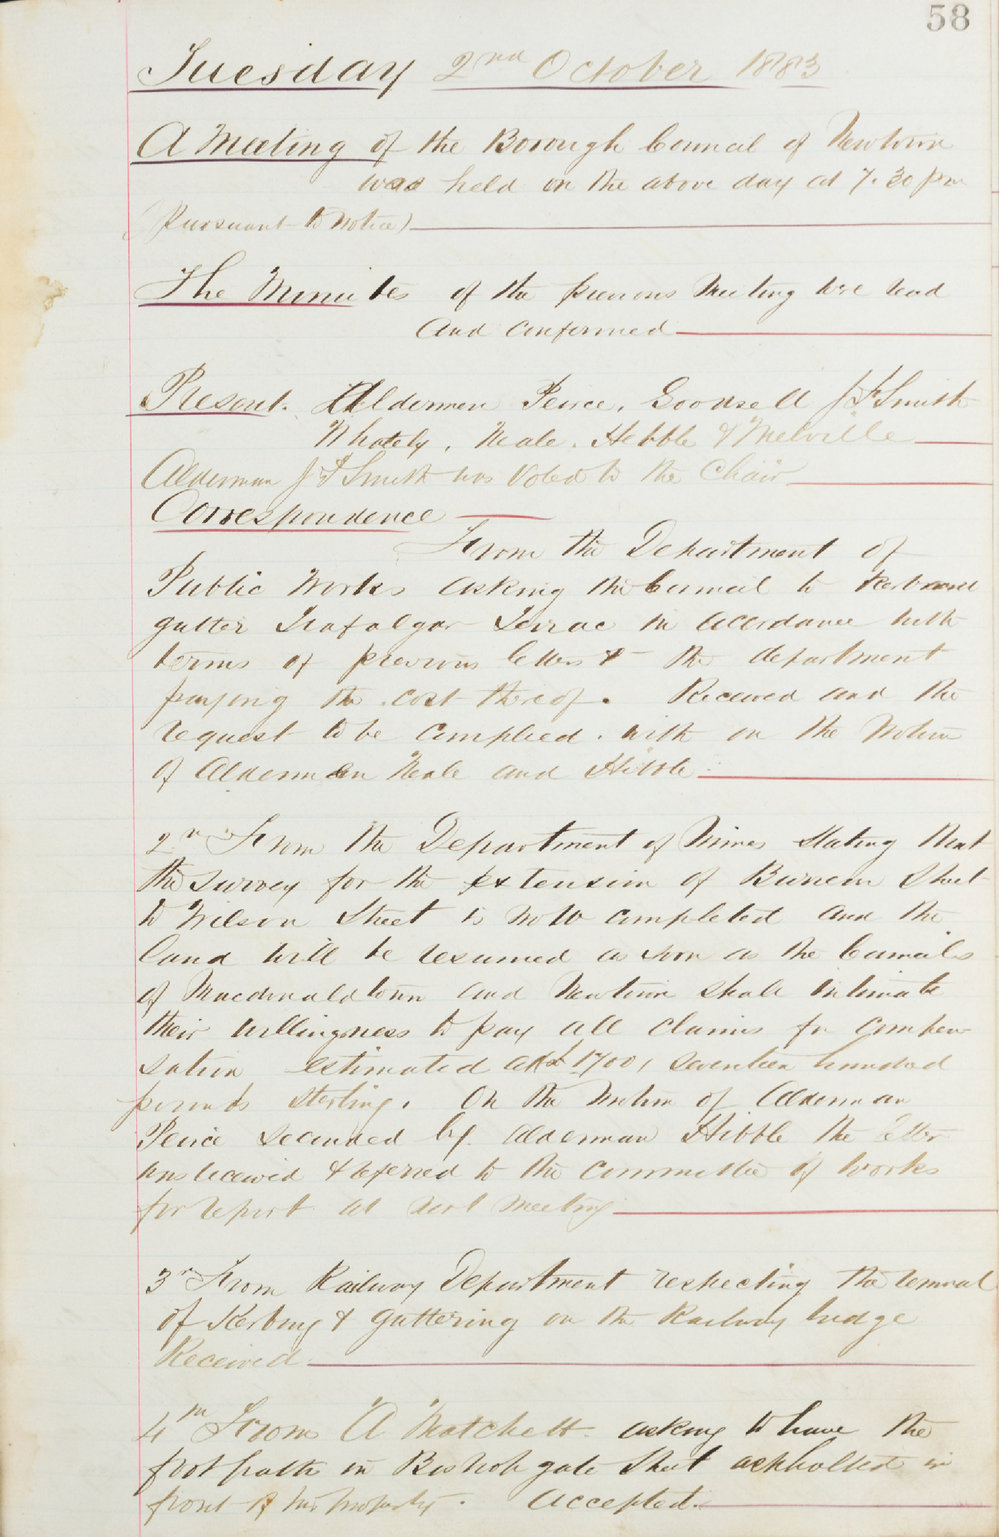 58
Tuesday 2nd October 1883
A Meeting of the Borough Council of Newtown
was held on the above day at 7.30 pm
(Pursuant to Notice)
The Minutes of the previous Meeting were read
and confirmed
Present. Aldermen Peirce, Goodsell J F Smith
Whately, Neale, Hibble & Melville
Alderman J F Smith was Voted to the Chair
Correspondence
From the Department of
Public Works asking the Council to Kerb and
gutter Trafalgar Terrace in accordance with
terms of previous letters & the department
paying the cost thereof. Received and the
request to be complied with on the Motion
of Aldermen Neale and Hibble
2n From the Department of Mines stating that
the survey for the extension of Burren Street
to Wilson Street is now completed and the
land will be resumed as soon as the Councils
of Macdonaldtown and Newtown shall intimate
their willingness to pay all claims for compen
sation estimated at £1700, seventeen hundred
pounds sterling. On the Motion of Alderman
Peirce seconded by Alderman Hibble the letter
was received & referred to the Committee of Works
for report at next meeting
3r From Railway Department respecting the removal
of Kerbing & guttering on the Railway bridge
Received
4th From A Matchett asking to have the
footpath in Bishopgate Street asphalted in
front of his property. Accepted.